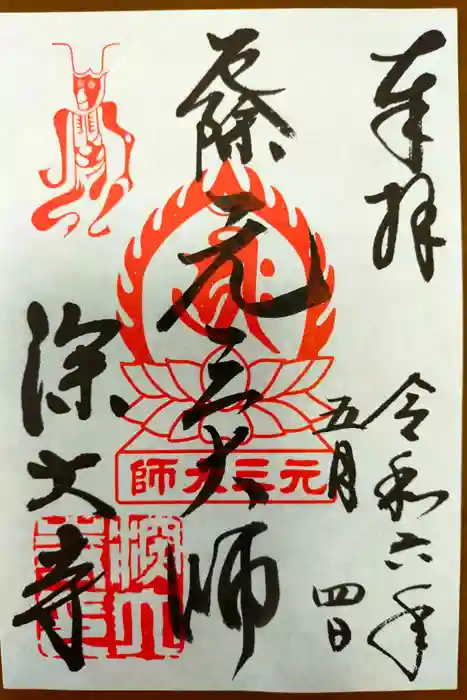 奉拝
令和六年
五月
四日
厄除
元三大師
元三大師
深大寺